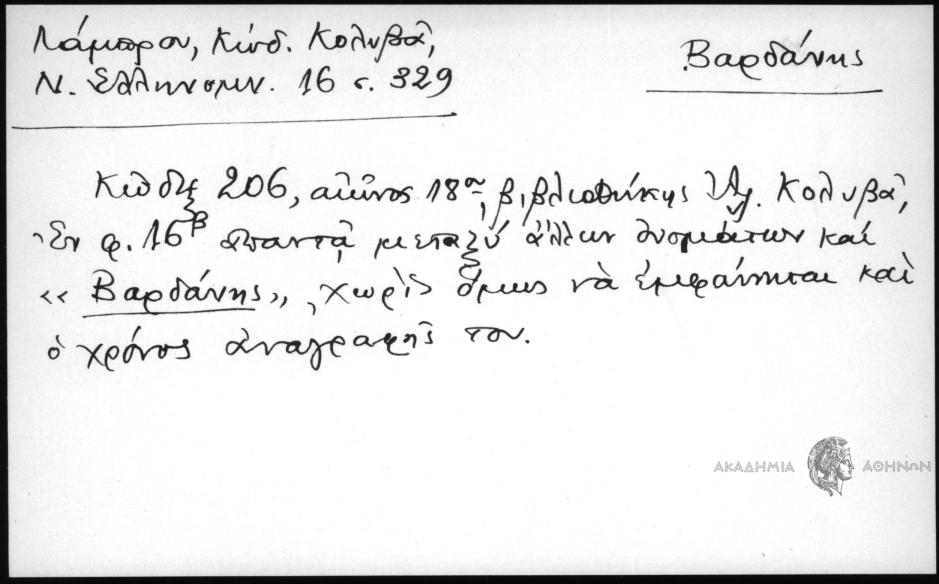 Λάμπρου, Κώδ. Κολυβᾶ,
Ν. Ἑλληνομν. 16 σ. 329
Βαρδάνης
Κῶδιξ 206, αἰῶνος 18ου, βιβλιοθήκης Ἀλ. Κολυβᾶ,
Ἐν φ. 16β ἀπαντᾷ μεταξύ ἄλλων ὀνομάτων καί
«Βαρδάνης», χωρὶς ὅμως νὰ ἐμφαίνηται καὶ
ὁ χρόνος ἀναγραφῆς του.
ΑΚΑΔΗΜΙΑ ΑΘΗΝΩΝ